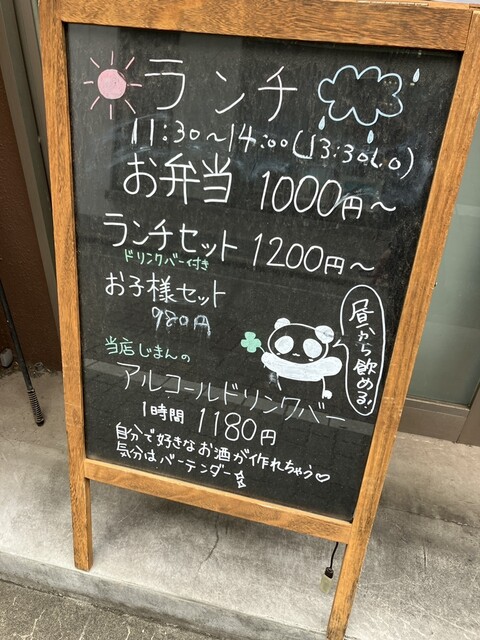 ランチ
11:30~14:00(13:30L.O)
お弁当 1000円~
ランチセット 1200円~
ドリンクバー付き
お子様セット
980円
昼から飲める!
当店じまんの
アルコールドリンクバー
1時間 1180円
自分で好きなお酒が作れちゃう♡
気分はバーテンダー